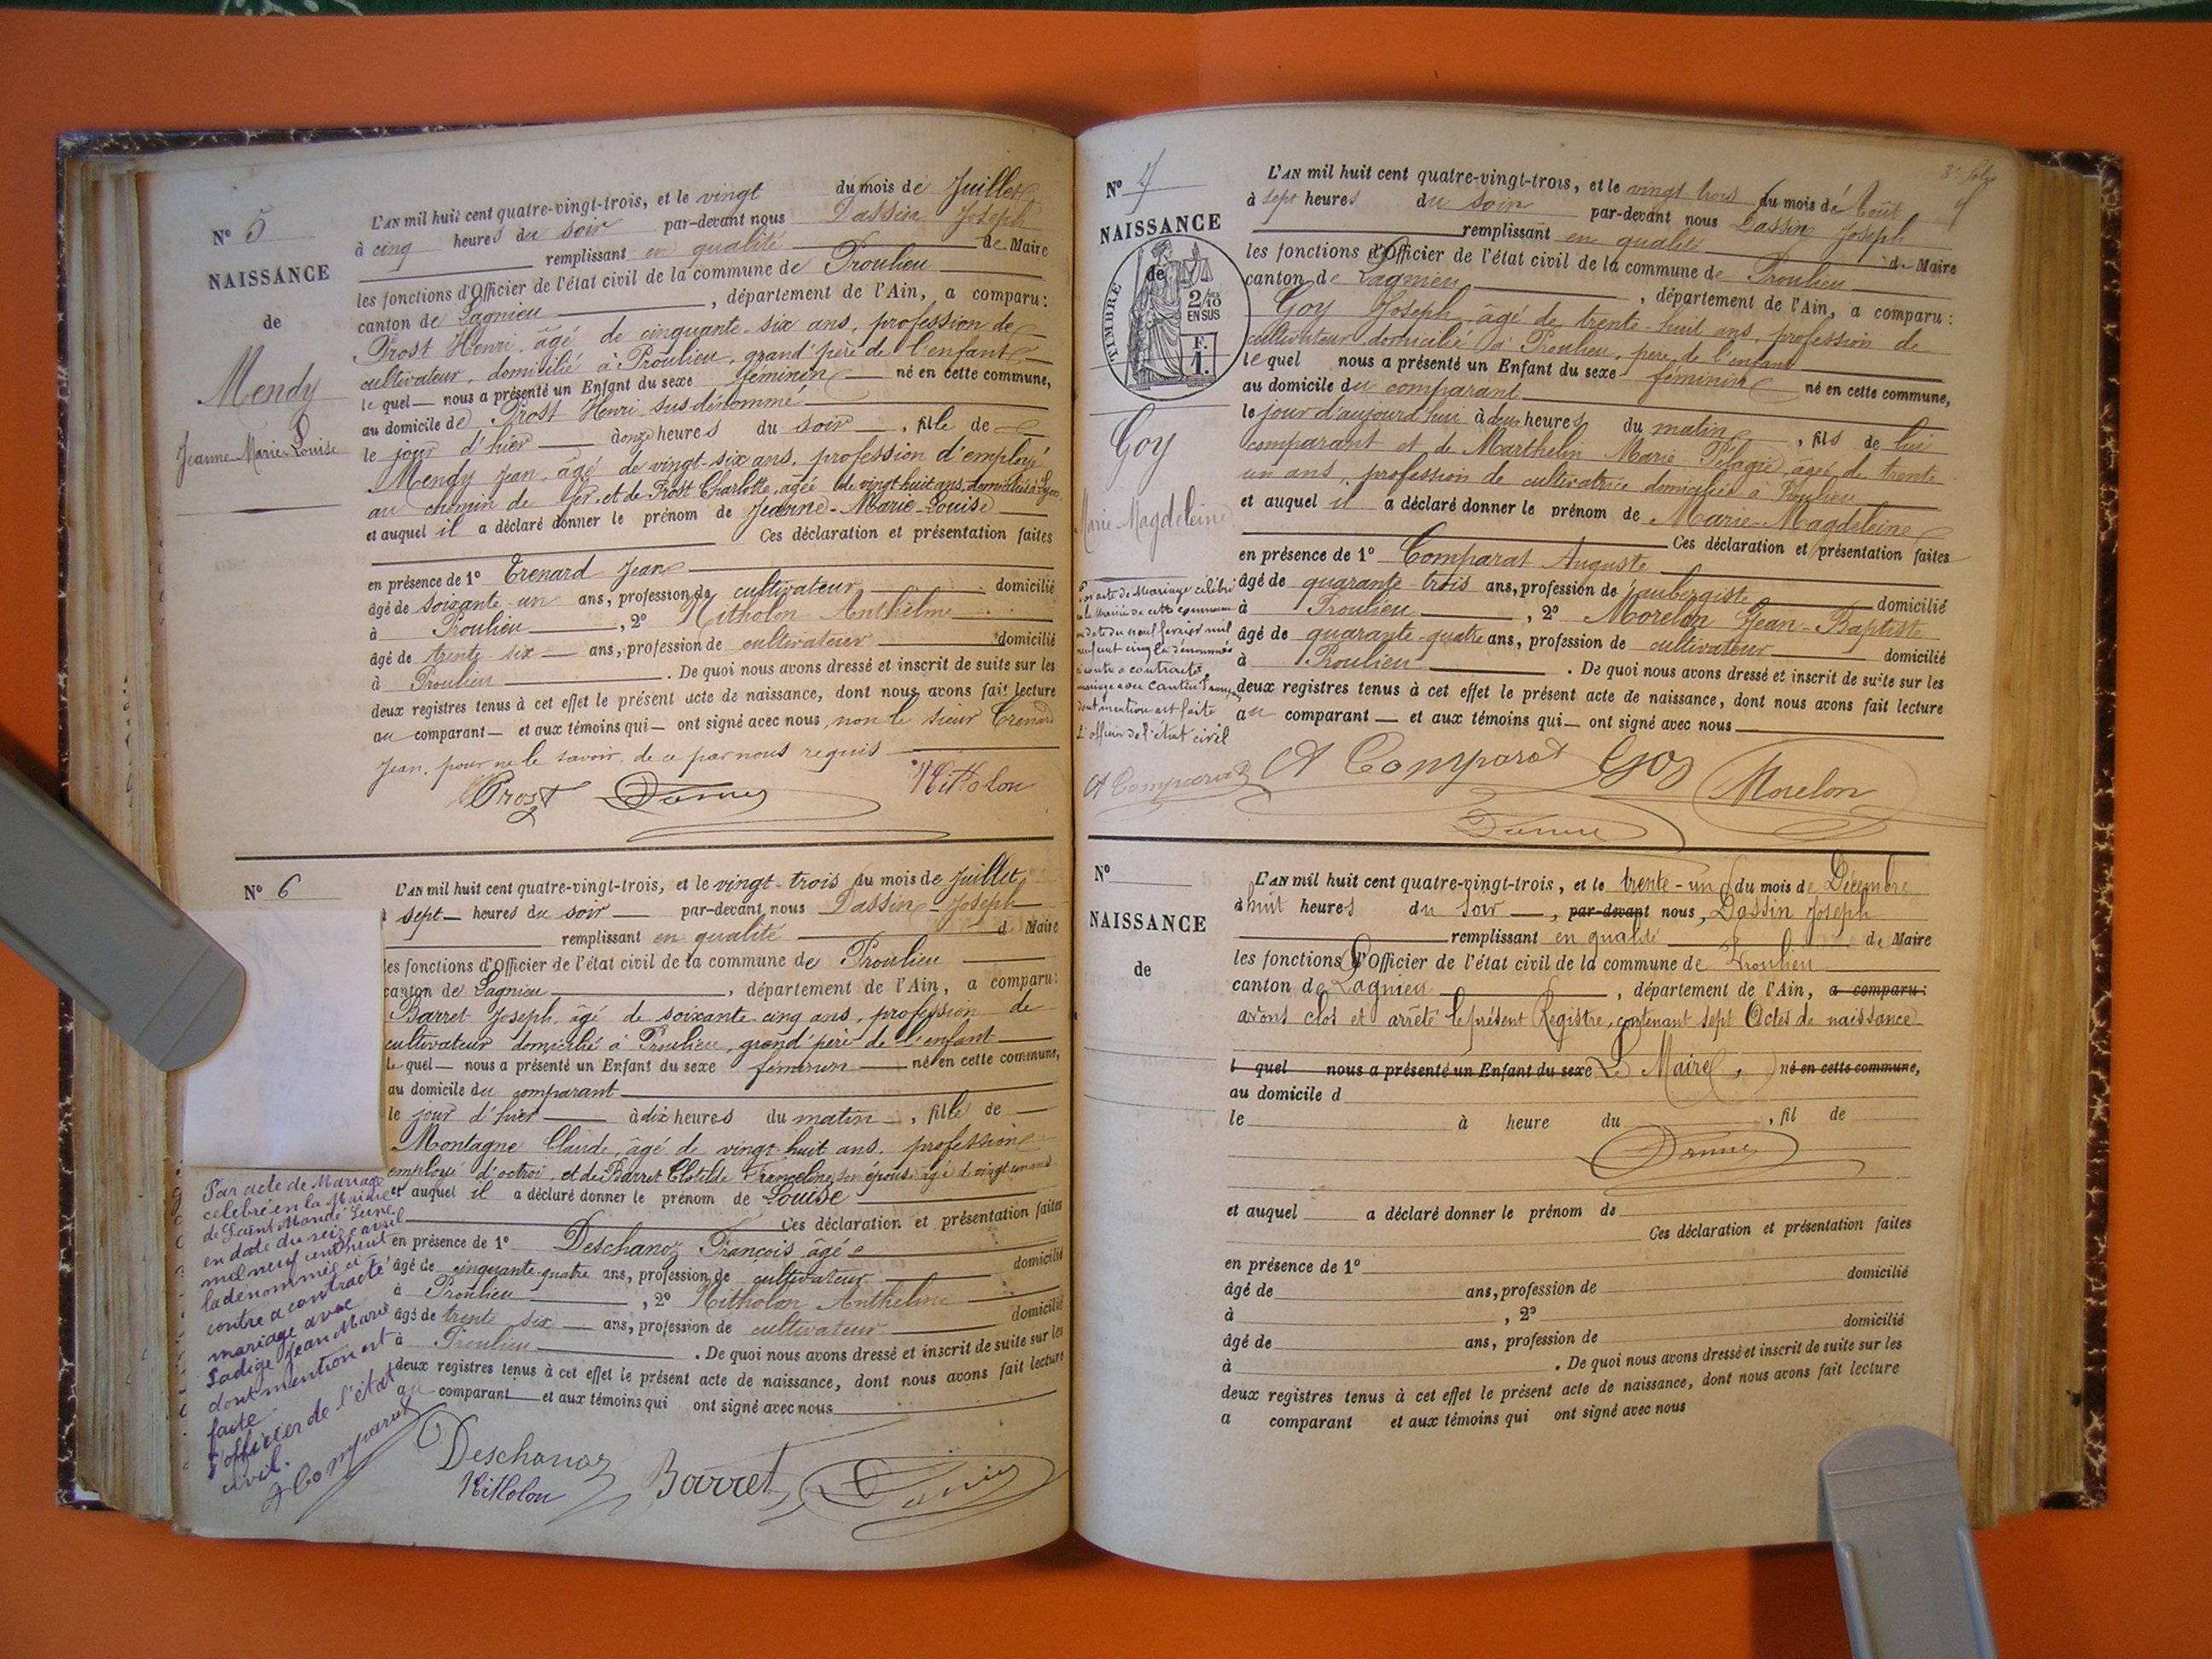 N° 5
NAISSANCE
de
Mendy
Jeanne-Marie-Louise
L'AN mil huit cent quatre-vingt-trois, et le vingt du mois de Juillet
à cinq heures du soir par-devant nous Dassin Joseph
remplissant en qualité de Maire
les fonctions d'Officier de l'état civil de la commune de Proulieu
canton de Lagnieu, département de l'Ain, a comparu:
Prost Henri, âgé de cinquante-six ans, profession de
cultivateur, domicilié à Proulieu, grand'père de l'enfant
le quel nous a présenté un Enfant du sexe féminin né en cette commune,
au domicile de Prost Henri susdénommé
le jour d'hier à onze heures du soir, fille de
Mendy Jean, âgé de vingt-six ans, profession d'employé
au chemin de fer, et de Prost Charlotte, agée de vingt huit ans, domiciliés à Lyon
et auquel il a déclaré donner le prénom de Jeanne-Marie-Louise
Ces déclaration et présentation faites
en présence de 1° Trenard Jean
âgé de soixante-un ans, profession de cultivateur domicilié
à Proulieu, 2° Mitholon Anthelme
âgé de trente-six ans, profession de cultivateur domicilié
à Proulieu. De quoi nous avons dressé et inscrit de suite sur les
deux registres tenus à cet effet le présent acte de naissance, dont nous avons fait lecture
au comparant et aux témoins qui ont signé avec nous, non le sieur Trenard
Jean, pour ne le savoir, de ce par nous requis
Prost Mitholon
N° 6
L'AN mil huit cent quatre-vingt-trois, et le vingt-trois du mois de Juillet
à sept heures du soir par-devant nous Dassin Joseph
remplissant en qualité de Maire
les fonctions d'Officier de l'état civil de la commune de Proulieu
canton de Lagnieu, département de l'Ain, a comparu:
Barret Joseph, âgé de soixante-cinq ans, profession de
cultivateur domicilié à Proulieu, grand'père de l'enfant
le quel nous a présenté un Enfant du sexe féminin né en cette commune,
au domicile du comparant
le jour d'hier à dix heures du matin, fille de
Montagne Claude, âgé de vingt-huit ans, profession
employé d'octroi, et de Barret Clotilde Franceline, son épouse agé de vingt un ans
et auquel il a déclaré donner le prénom de Louise
Ces déclaration et présentation faites
en présence de 1° Deschanoz François, âgé
âgé de cinquante-quatre ans, profession de cultivateur domicilié
à Proulieu, 2° Mitholon Anthelme
âgé de trente six ans, profession de cultivateur domicilié
à Proulieu. De quoi nous avons dressé et inscrit de suite sur les
deux registres tenus à cet effet le présent acte de naissance, dont nous avons fait lecture
au comparant et aux témoins qui ont signé avec nous
Par acte de Mariage
célébré en la Mairie
de Saint Mandé Seine
en date du seize avril
mil neuf cent huit
la dénommée ci
contre a contracté
mariage avec
Ladige Jean Marie
dont mention est
faite
L'officier de l'état
civil.
A Comparat
Deschanoz
Mitholon Barret
N° 7
NAISSANCE
de
TIMBRE
2/10 EN SUS
F. 1.
Goy
Marie-Magdeleine
3e folio
L'AN mil huit cent quatre-vingt-trois, et le vingt trois du mois de Août
à sept heures du soir par-devant nous Dassin Joseph
remplissant en qualité de Maire
les fonctions d'Officier de l'état civil de la commune de Proulieu
canton de Lagnieu, département de l'Ain, a comparu:
Goy Joseph, âgé de trente-huit ans, profession de
cultivateur domicilié à Proulieu, père de l'enfant
le quel nous a présenté un Enfant du sexe féminin né en cette commune,
au domicile du comparant
le jour d'aujourd'hui à deux heures du matin, fils de lui
comparant et de Marthelin Marie-Pélagie, âgée de trente
un ans, profession de cultivatrice domiciliée à Proulieu
et auquel il a déclaré donner le prénom de Marie-Magdeleine
Ces déclaration et présentation faites
en présence de 1° Comparat Auguste
âgé de quarante-trois ans, profession d'aubergiste domicilié
à Proulieu, 2° Morelon Jean-Baptiste
âgé de quarante-quatre ans, profession de cultivateur domicilié
à Proulieu. De quoi nous avons dressé et inscrit de suite sur les
deux registres tenus à cet effet le présent acte de naissance, dont nous avons fait lecture
au comparant et aux témoins qui ont signé avec nous
Par acte de Mariage célébré
en la Mairie de cette commune
en date du neuf février mil
neuf cent cinq la dénommée
ci contre a contracté
mariage avec
dont mention est faite
L'officier de l'état civil
A Comparat A Comparat Goy Morelon
N°
NAISSANCE
de
L'AN mil huit cent quatre-vingt-trois, et le trente-un du mois de Décembre
à huit heures du soir, par-devant nous, Dassin Joseph
remplissant en qualité de Maire
les fonctions d'Officier de l'état civil de la commune de Proulieu
canton de Lagnieu, département de l'Ain, a comparu:
avons clos et arrêté le présent Registre, contenant sept Actes de naissance
l quel nous a présenté un Enfant du sexe Le Maire, né en cette commune,
au domicile d
le à heure du, fil de
et auquel a déclaré donner le prénom de
Ces déclaration et présentation faites
en présence de 1°
âgé de ans, profession de domicilié
à, 2°
âgé de ans, profession de domicilié
à. De quoi nous avons dressé et inscrit de suite sur les
deux registres tenus à cet effet le présent acte de naissance, dont nous avons fait lecture
a comparant et aux témoins qui ont signé avec nous